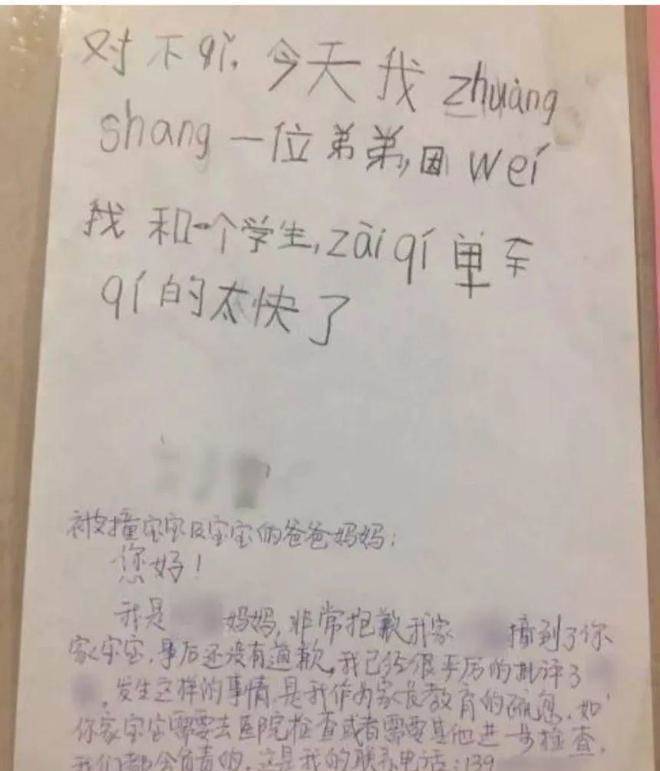 对不qǐ, 今天我zhuàng
shang一位弟弟, 因wéi
我和一个学生, zài qí单车
qí的太快了
被撞宝宝及宝宝的爸爸妈妈:
您好!
我是 妈妈, 非常抱歉我家 撞到了你
家宝宝, 事后还没有道歉, 我已经很严厉的批评了
, 发生这样的事情, 是我作为家长教育的疏忽, 如
你家宝宝需要去医院检查或者需要其他进一步检查,
我们都会负责的, 这是我的联系电话: 139